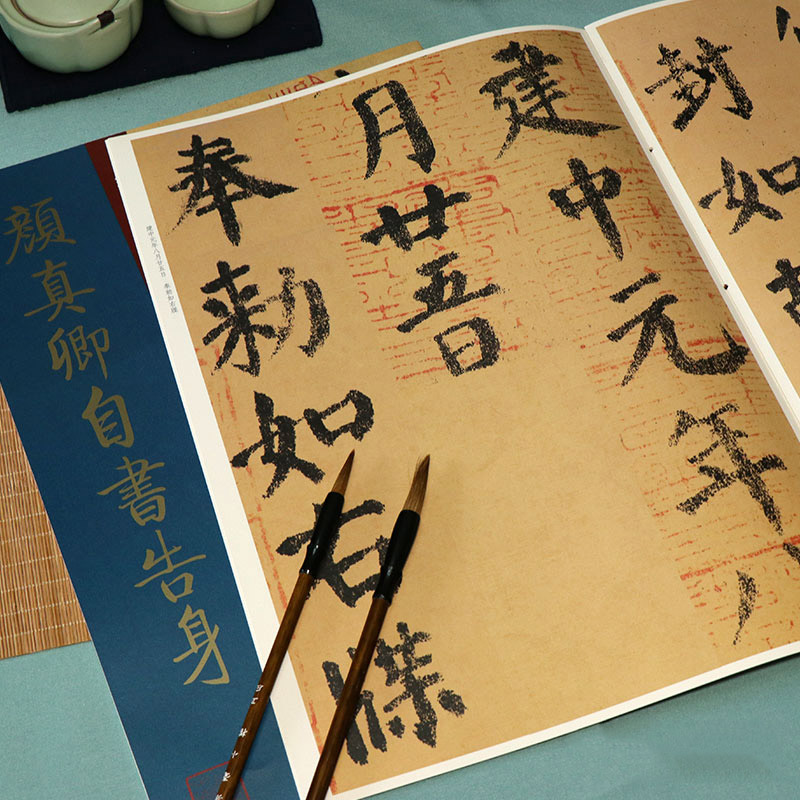 顔真卿自書告身
封如
建中元年八
月廿五日
奉勅如右牒
建中元年八月廿五日 奉勅如右牒